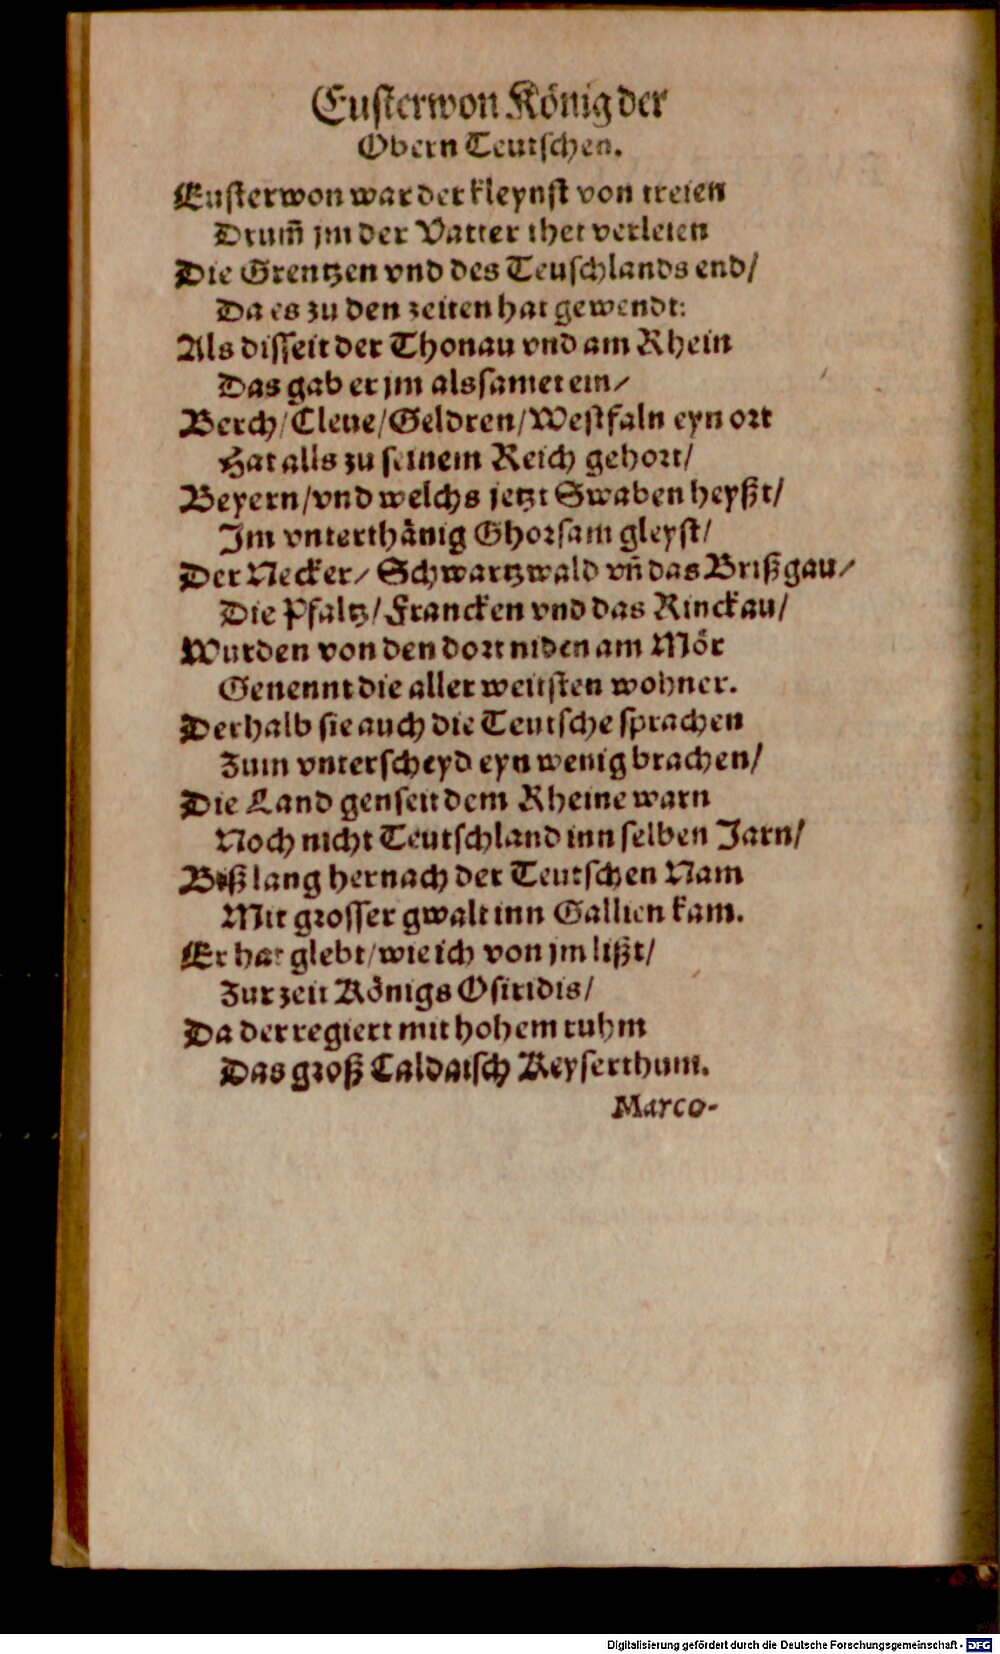 Eusterwon König der
Obern Teutschen.
Eusterwon war der kleynst von treien
Drum̃ jm der Vatter thet verleien
Die Grentzen vnd des Teuschlands end/
Da es zu den zeiten hat gewendt:
Als disseit der Thonau vnd am Rhein
Das gab er jm als samet ein/
Berch/Cleue/Geldren/Westfaln eyn ort
Hat alls zu seinem Reich gehort/
Beyern/vnd welchs jetzt Swaben heyßt/
Im vnterthånig Ghorsam gleyst/
Der Necker/ Schwartzwald vñ das Brißgau/
Die Pfaltz/Francken vnd das Rinckau/
Wurden von den dort niden am Mör
Genennt die aller weitsten wohner.
Derhalb sie auch die Teutsche sprachen
Zum vnterscheyd eyn wenig brachen/
Die Land genseit dem Rheine warn
Noch nicht Teutschland inn selben Jarn/
Biß lang hernach der Teutschen Nam
Mit grosser gwalt inn Gallien kam.
Er hat glebt/wie ich von jm lißt/
Zur zeit Königs Osiridis/
Da der regiert mit hohem ruhm
Das groß Caldaisch Keyserthum.
Marco-
Digitalisierung gefördert durch die Deutsche Forschungsgemeinschaft - DFG